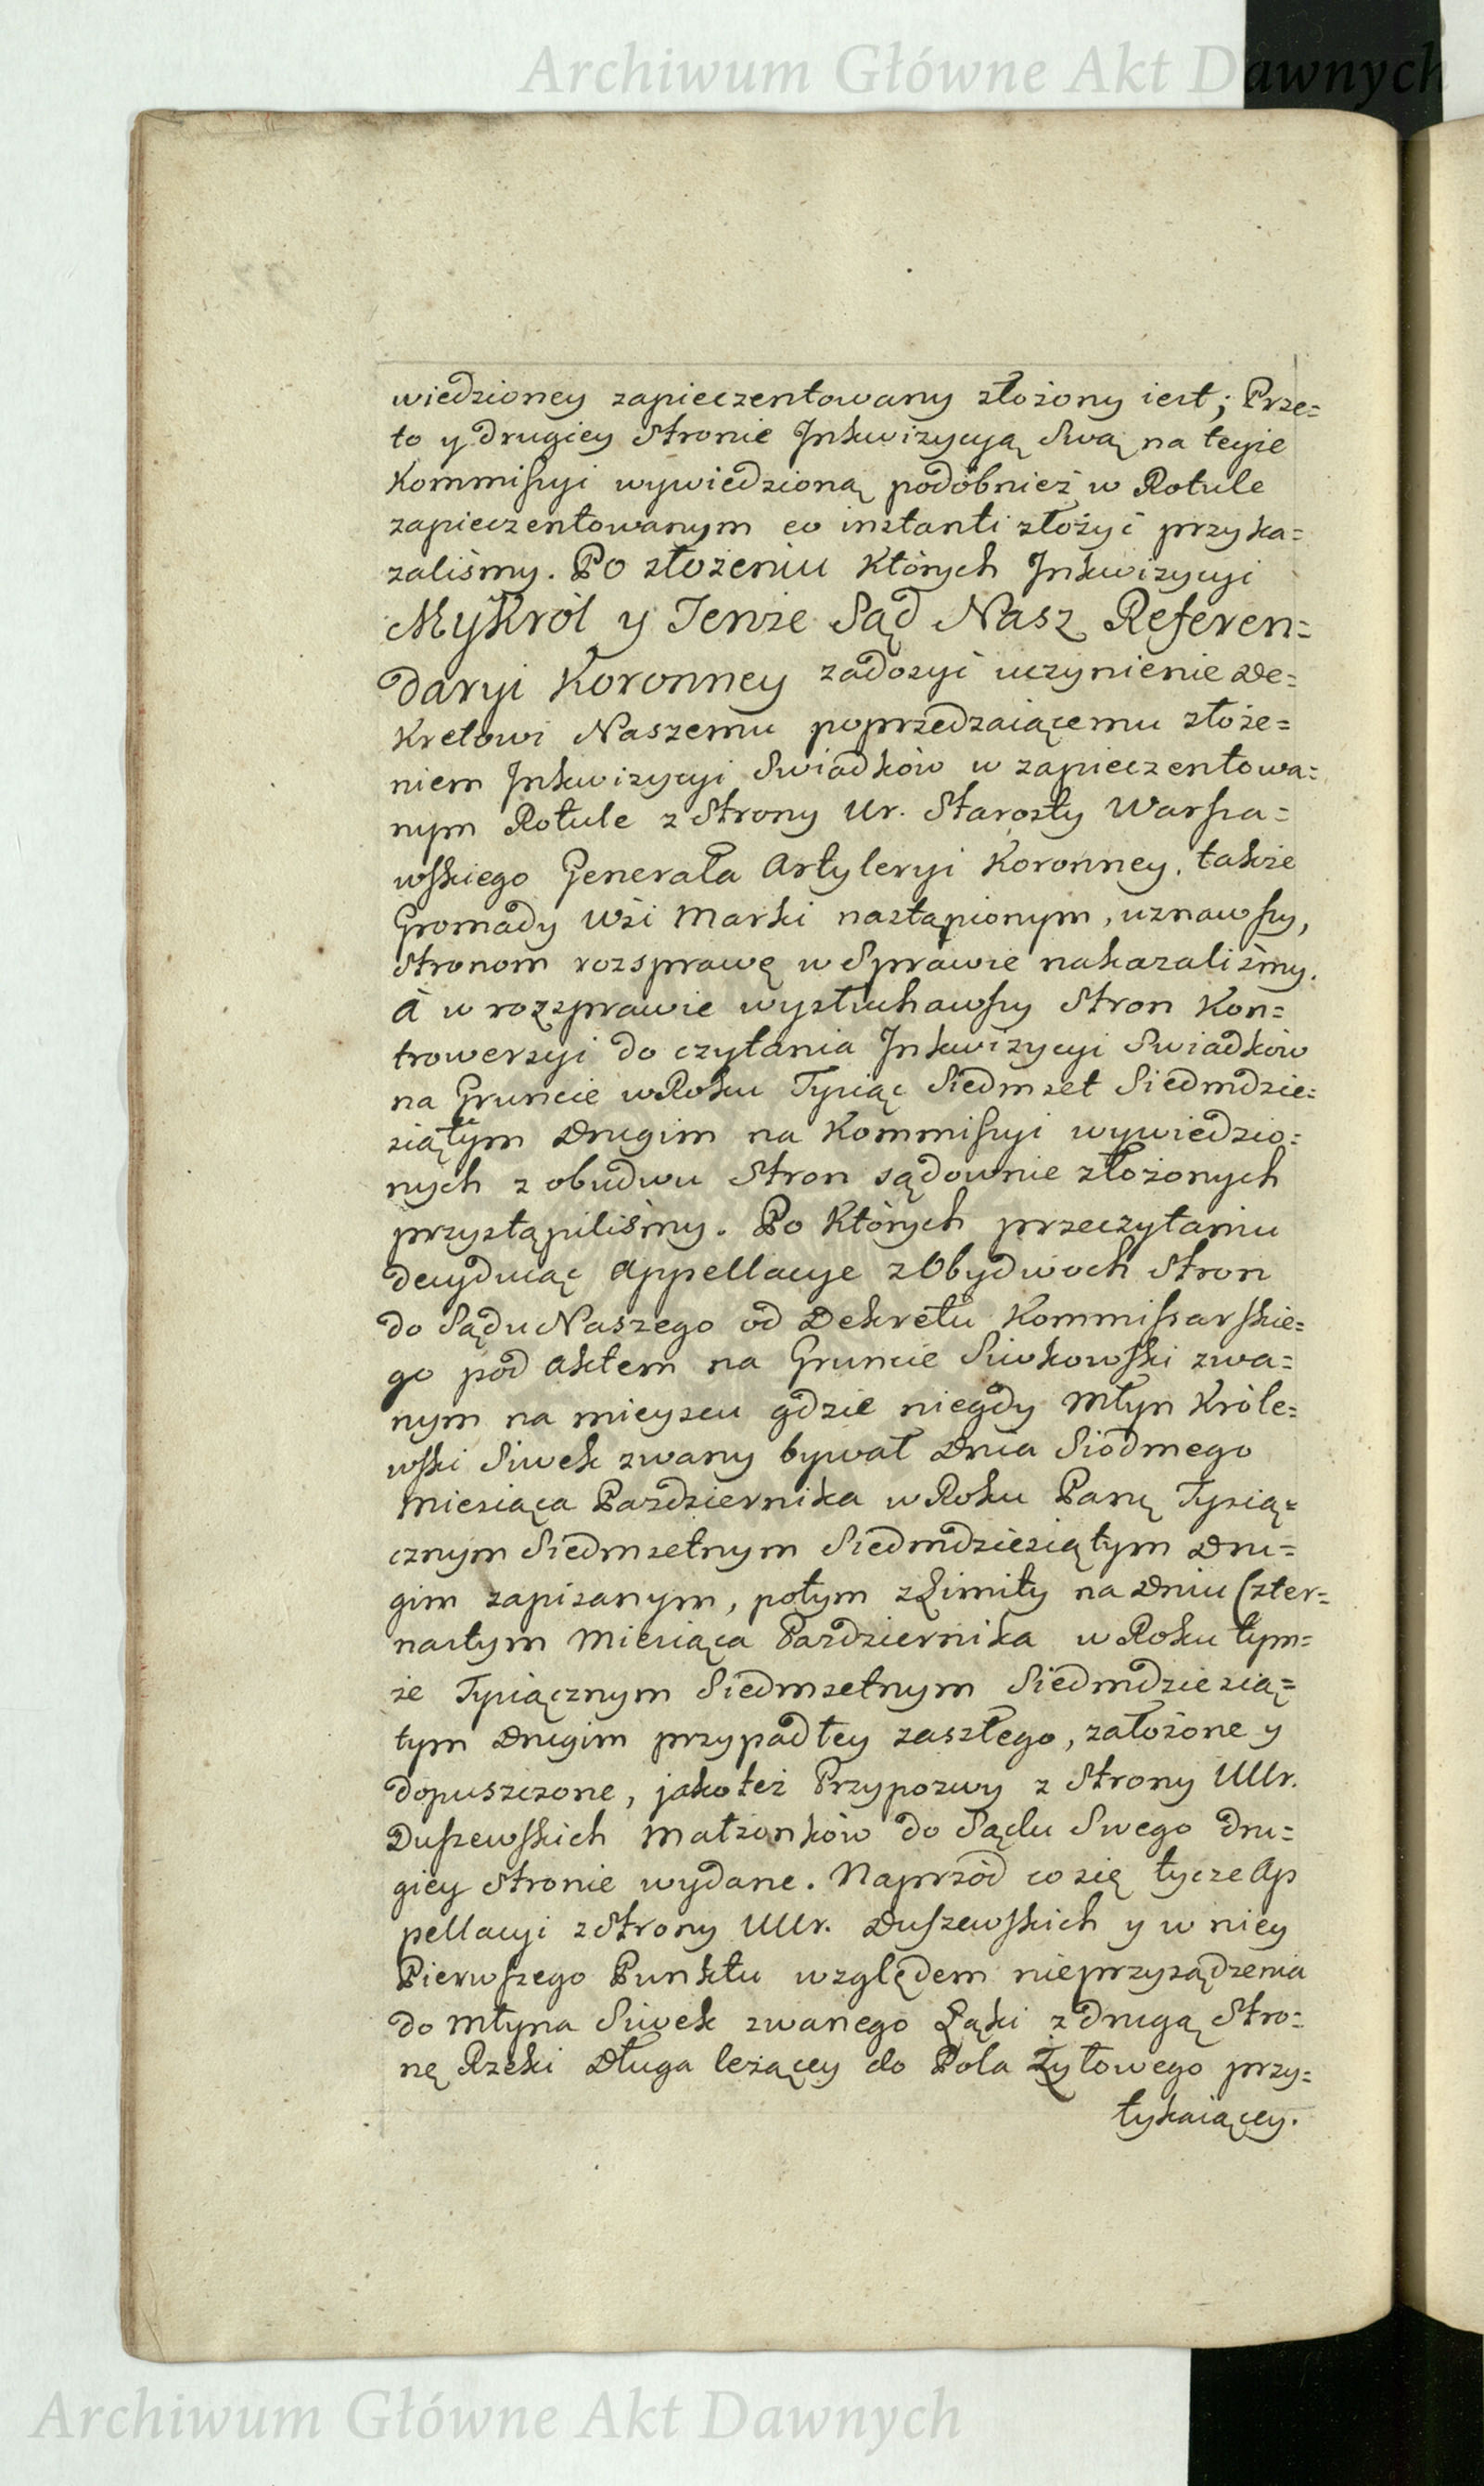 Archiwum Główne Akt Dawnych
wiedzioney zapieczentowany złożony iest; Prze=
to y drugiey Stronie Inkwizycyą Swą na teyże
Kommissyi wywiedzioną podobnież w Rotule
zapieczentowanym eo instanti złożyć przyka=
zaliśmy. Po złożeniu których Inkwizycyi
My Król y Tenże Sąd Nasz Referen=
daryi Koronney zadosyć uczynienie De=
kretowi Naszemu poprzedzaiącemu złoże=
niem Inkwizycyi Swiadków w zapieczentowa=
nym Rotule z Strony Ur. Starosty Warsza=
wskiego Generała Artyleryi Koronney, także
Gromady Wsi Marki nastąpionym, uznawszy,
Stronom rozsprawę w Sprawie nakazaliśmy.
A w rozsprawie wysłuchawszy Stron Kon=
trowersyi do czytania Inkwizycyi Swiadków
na Gruncie w Roku Tysiąc Siedmset Siedmdzie=
siątym Drugim na Kommissyi wywiedzio=
nych z obudwu Stron sądownie złożonych
przystąpiliśmy. Po których przeczytaniu
decyduiąc Appellacye z Obydwoch Stron
do Sądu Naszego od Dekretu Kommissarskie=
go pod Aktem na Gruncie Siwkowski zwa=
nym na mieyscu gdzie niegdy Młyn Króle=
wski Siwek zwany bywał Dnia Siodmego
Miesiąca Pazdziernika w Roku Panu Tysią=
cznym Siedmsetnym Siedmdziesiątym Dru=
gim zapisanym, potym z Limity na Dniu Czter=
nastym Miesiąca Pazdziernika w Roku tym=
że Tysiącznym Siedmsetnym Siedmdziesią=
tym Drugim przypadłey zaszłego, założone y
dopuszczone, jakoteż Przypozwy z Strony UUr.
Duszewskich Małżonków do Sądu Swego dru=
giey Stronie wydane. Naprzód co się tycze Ap
pellacyi z Strony UUr. Duszewskich y w niey
Pierwszego Punktu względem nieprzysądzenia
do Młyna Siwek zwanego Łąki z drugą Stro=
nę Rzeki Długa leżącey do Pola Żytowego przy=
tykaiącey.
Archiwum Główne Akt Dawnych